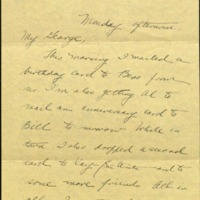 Monday afternoon.
My George,
This morning I mailed a
birthday card to Bess from
us. I'm also getting Al to
mail an anniversary card to
Bill to-morrow. While in
town I also dropped a second
card to
some more friends